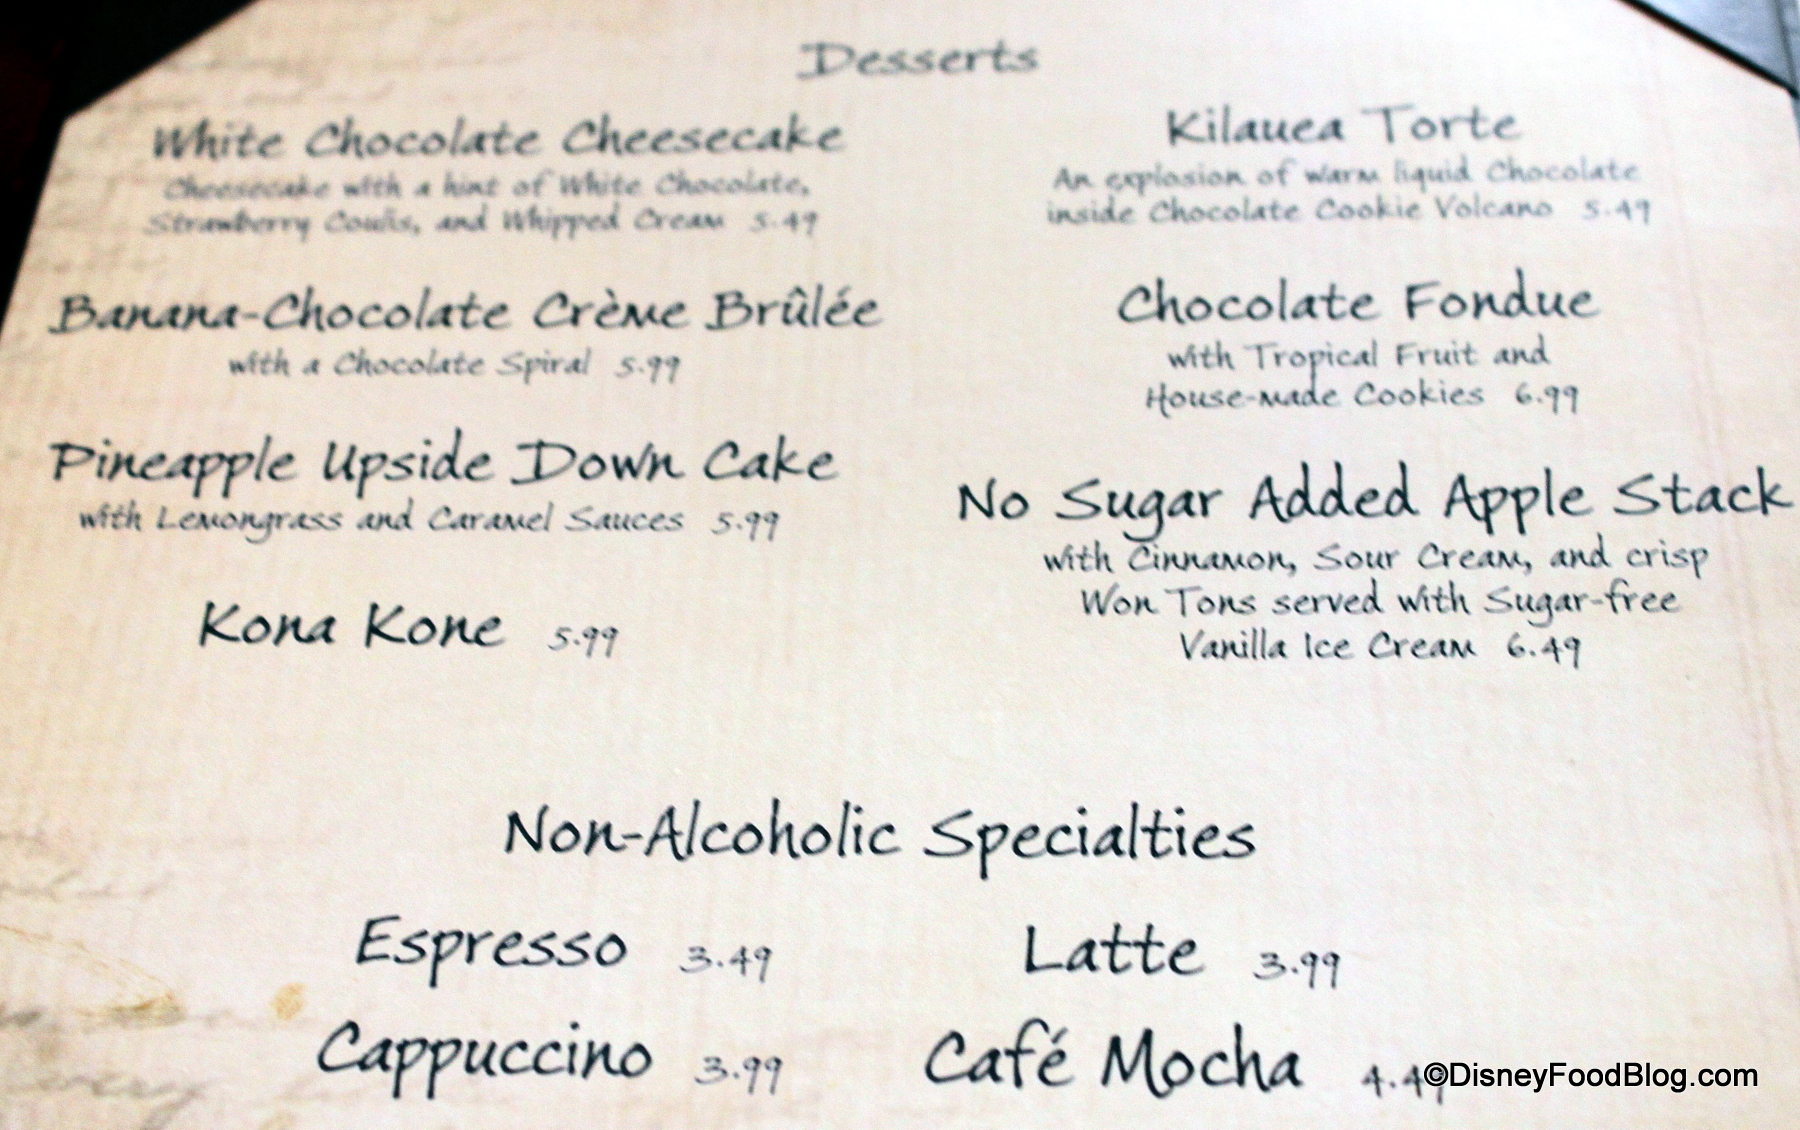 Desserts
White Chocolate Cheesecake
Cheesecake with a hint of White Chocolate,
Strawberry Coulis, and Whipped Cream 5.49
Banana-Chocolate Crème Brûlée
with a Chocolate Spiral 5.99
Pineapple Upside Down Cake
with Lemongrass and Caramel Sauces 5.99
Kona Kone 5.99
Kilauea Torte
An explosion of warm liquid Chocolate
inside Chocolate Cookie Volcano 5.49
Chocolate Fondue
with Tropical Fruit and
House-made Cookies 6.99
No Sugar Added Apple Stack
with Cinnamon, Sour Cream, and crisp
Won Tons served with Sugar-free
Vanilla Ice Cream 6.49
Non-Alcoholic Specialties
Espresso 3.49
Latte 3.99
Cappuccino 3.99
Café Mocha 4.49
©DisneyFoodBlog.com